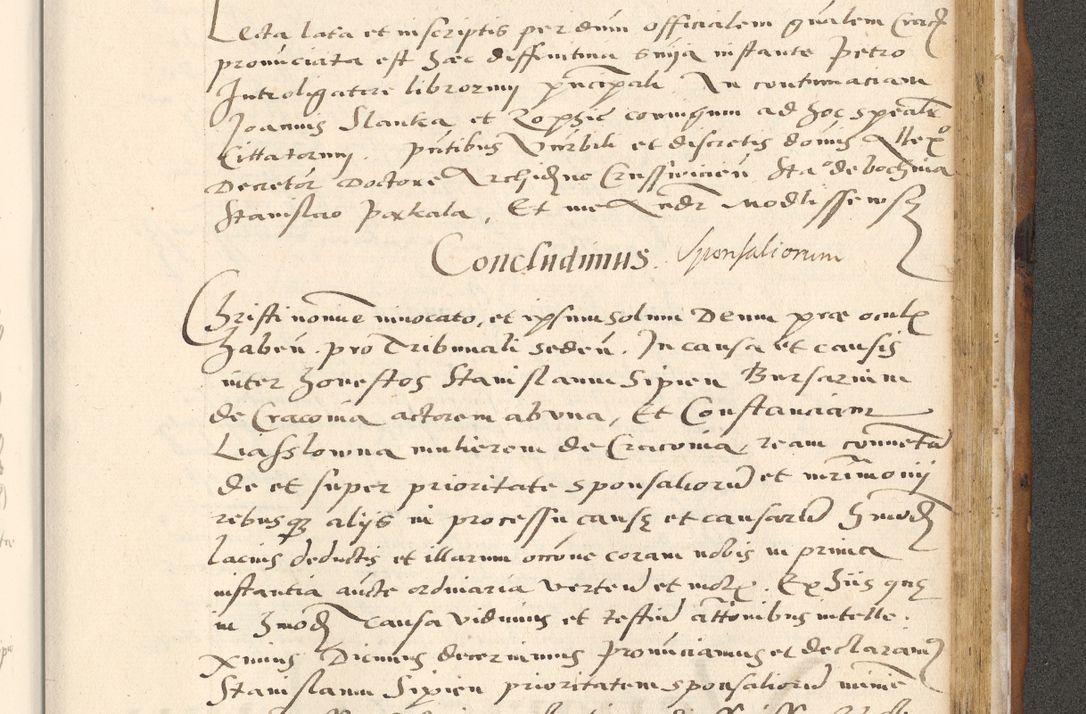 Lecta lata et in scriptis per dnum officialem gnalem Crac
pronuciata est hæc diffinitiua snia instante Petro
Introligatore librorum pncipali In contumaciam
Joannis Slanka et Zophie coniugum ad hoc spealr
Cittatorum. Pntibus Vnrbili et discretis donis Alexo
Decretor Doctore Archidno Sta° de bochnia
Stanislao Parkala, Et me Andr Modlissewsk
Concludimus. Sponsaliorum
Christi nomine inuocato, et ipsum solum Deum præ oculis
haben. pro Tribunali seden. In causa et causis
inter honestos Stanislaum Sipien Bursarium
de Cracouia actorem ab vna, Et Constanciam
Liasslowna mulierem de Cracouia, ream conuentam
de et super prioritate sponsaliorum et mrimonij
rebusque alijs in processu causæ et causarum hmodi
lacius deductis et illarum occone coram nobis in prima
instantia aucte ordinaria verten et mota. Ex hijs quæ
in hmodi Causa vidimus et testium attonibus intelle.
ximus Dicimus decernimus Pronunciamus et declaramus
Stanislaum Sipien prioritatem sponsaliorum minime